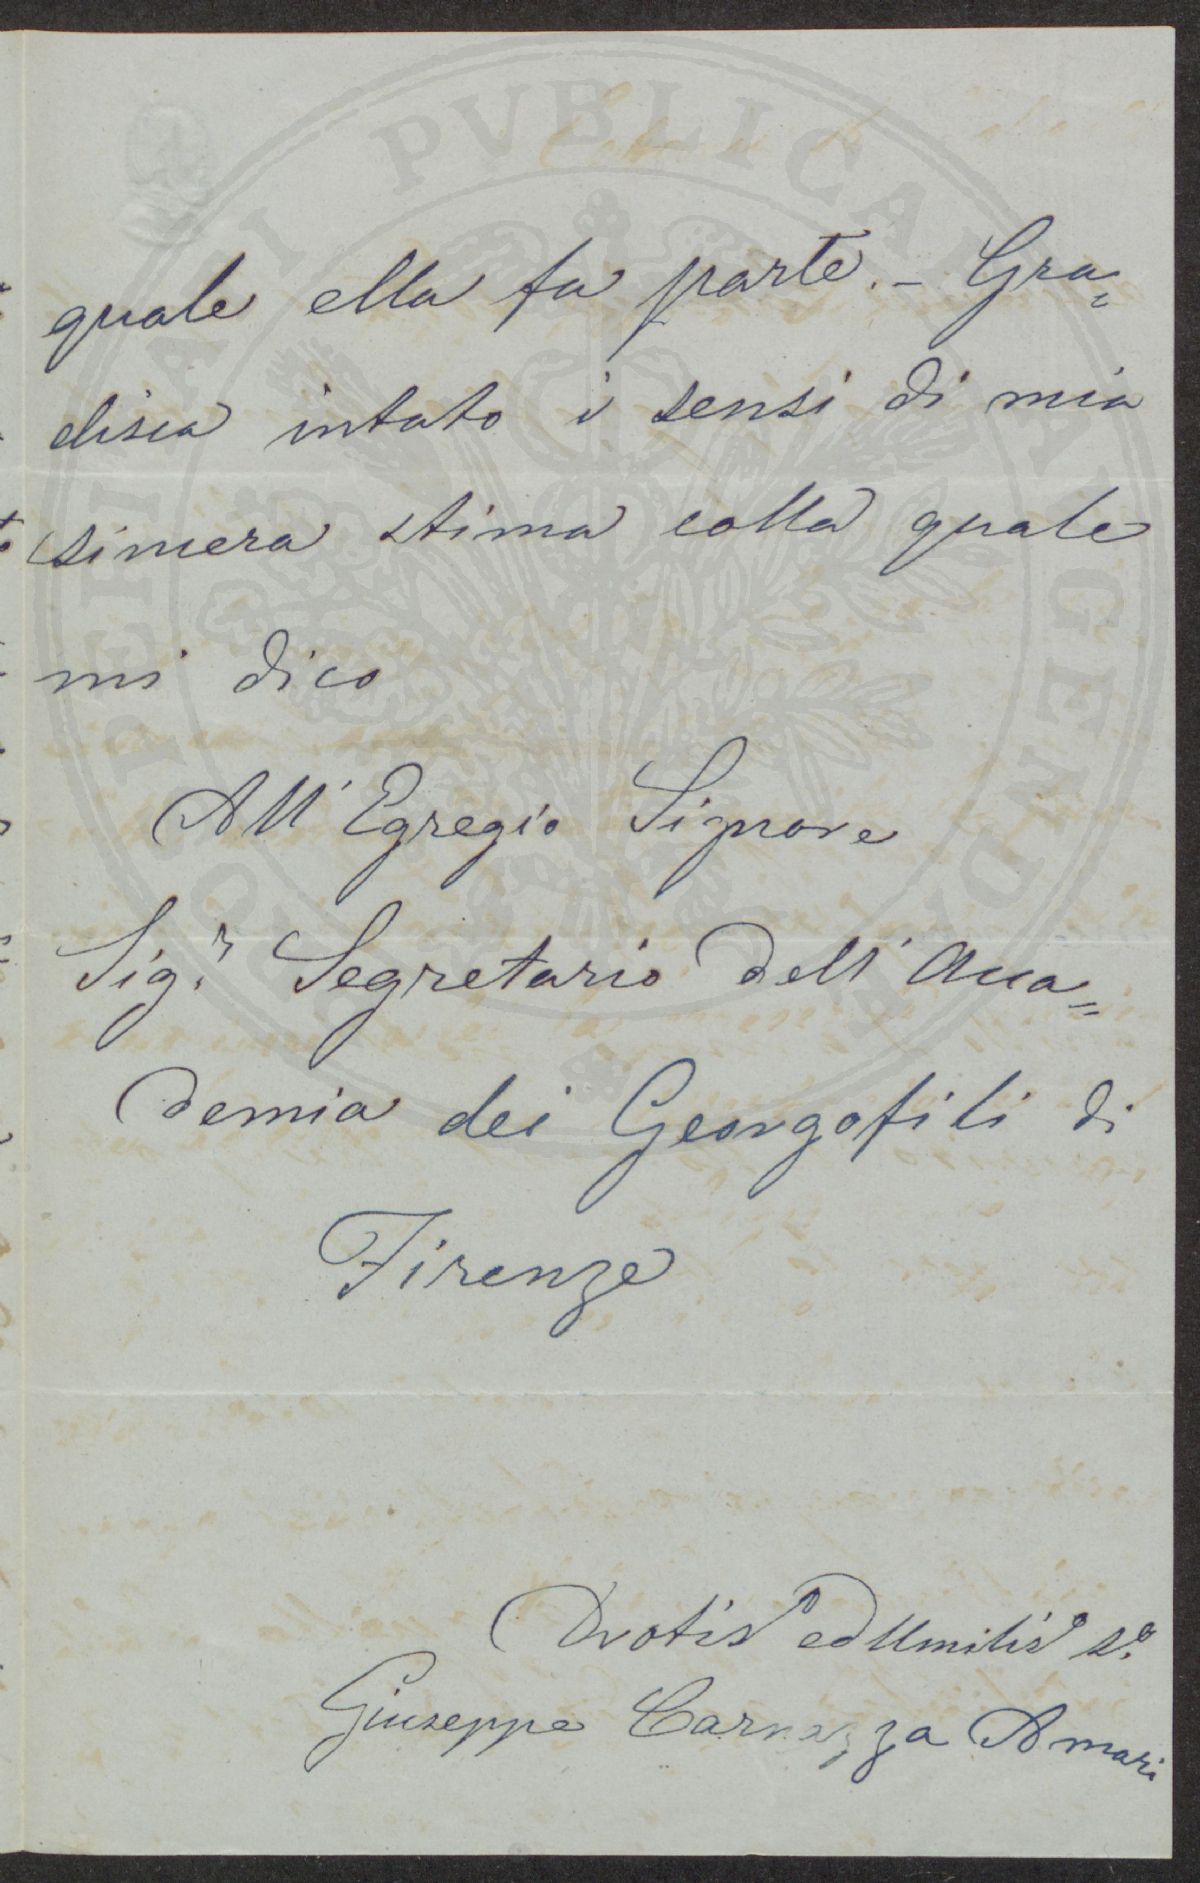 quale ella fa parte. - Gra=
disca intato i sensi di mia
sincera stima colla quale
mi dico
All' Egregio Signore
Sig.r Segretario dell' Acca=
demia dei Georgofili di
Firenze
Dvotiso ed Umiliso so.
Giuseppe Carnazza Amari